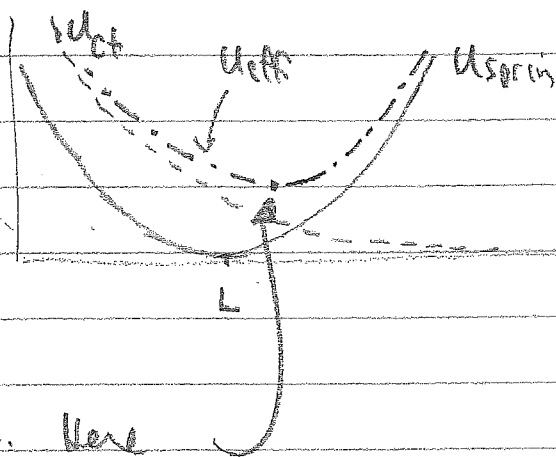 Ucf
Ueff
Uspring
L
Here